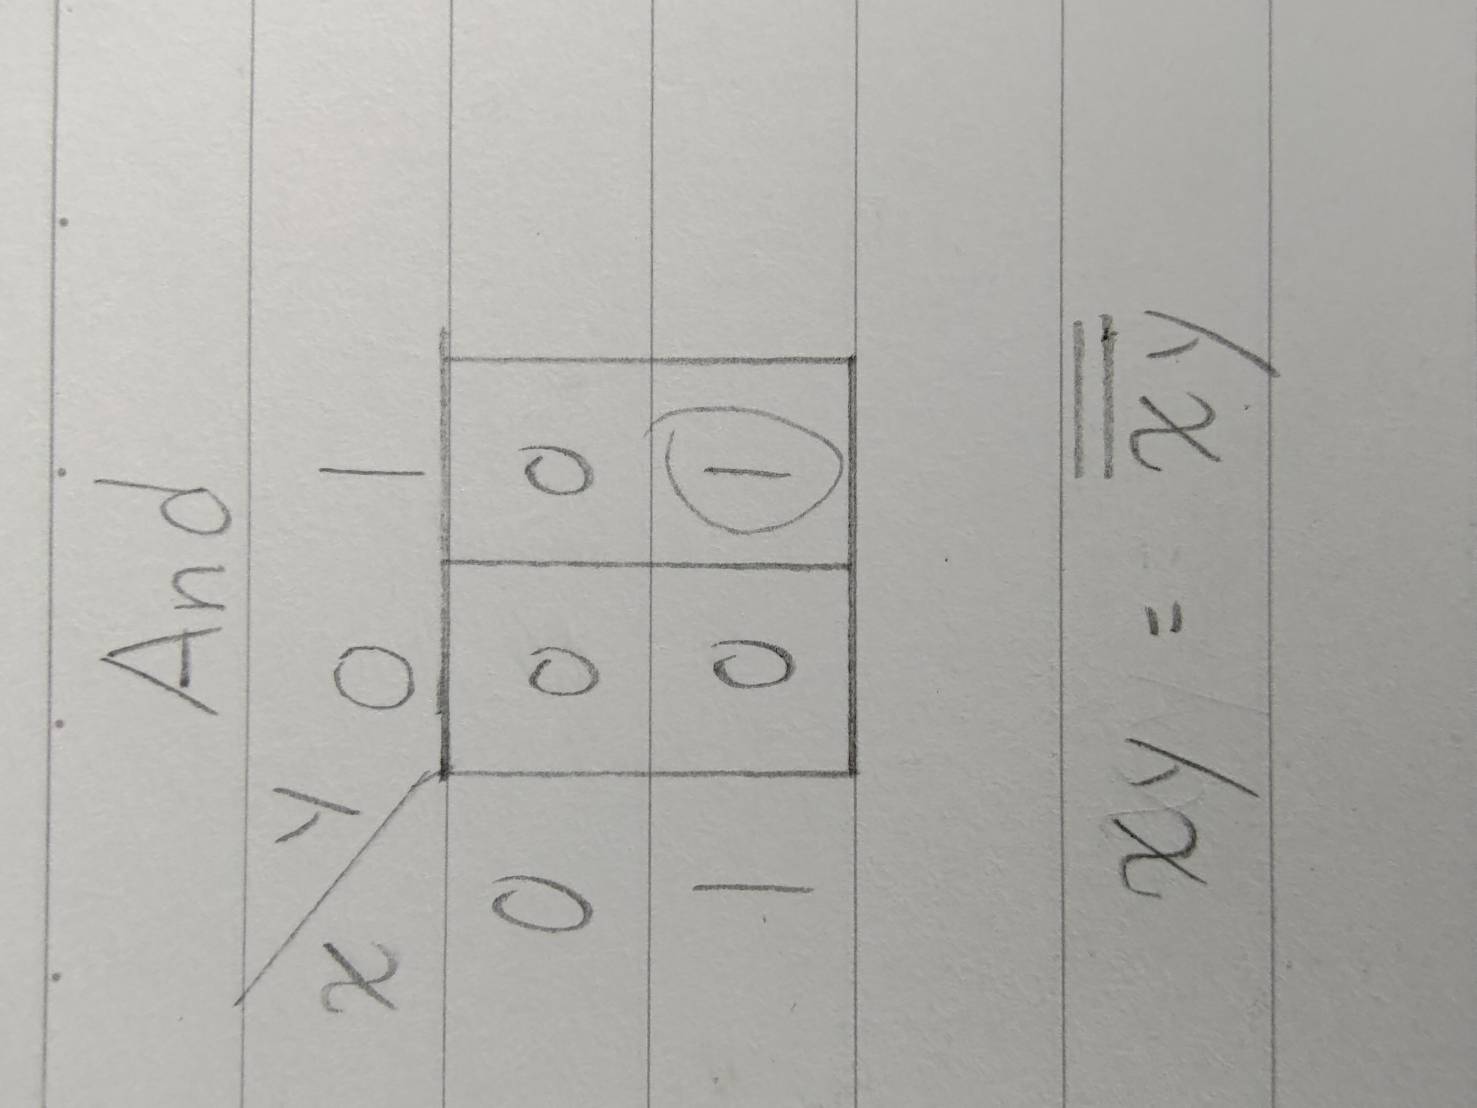 And
x y 0 1
0 0 0
1 0 1
xy = x̿y̿